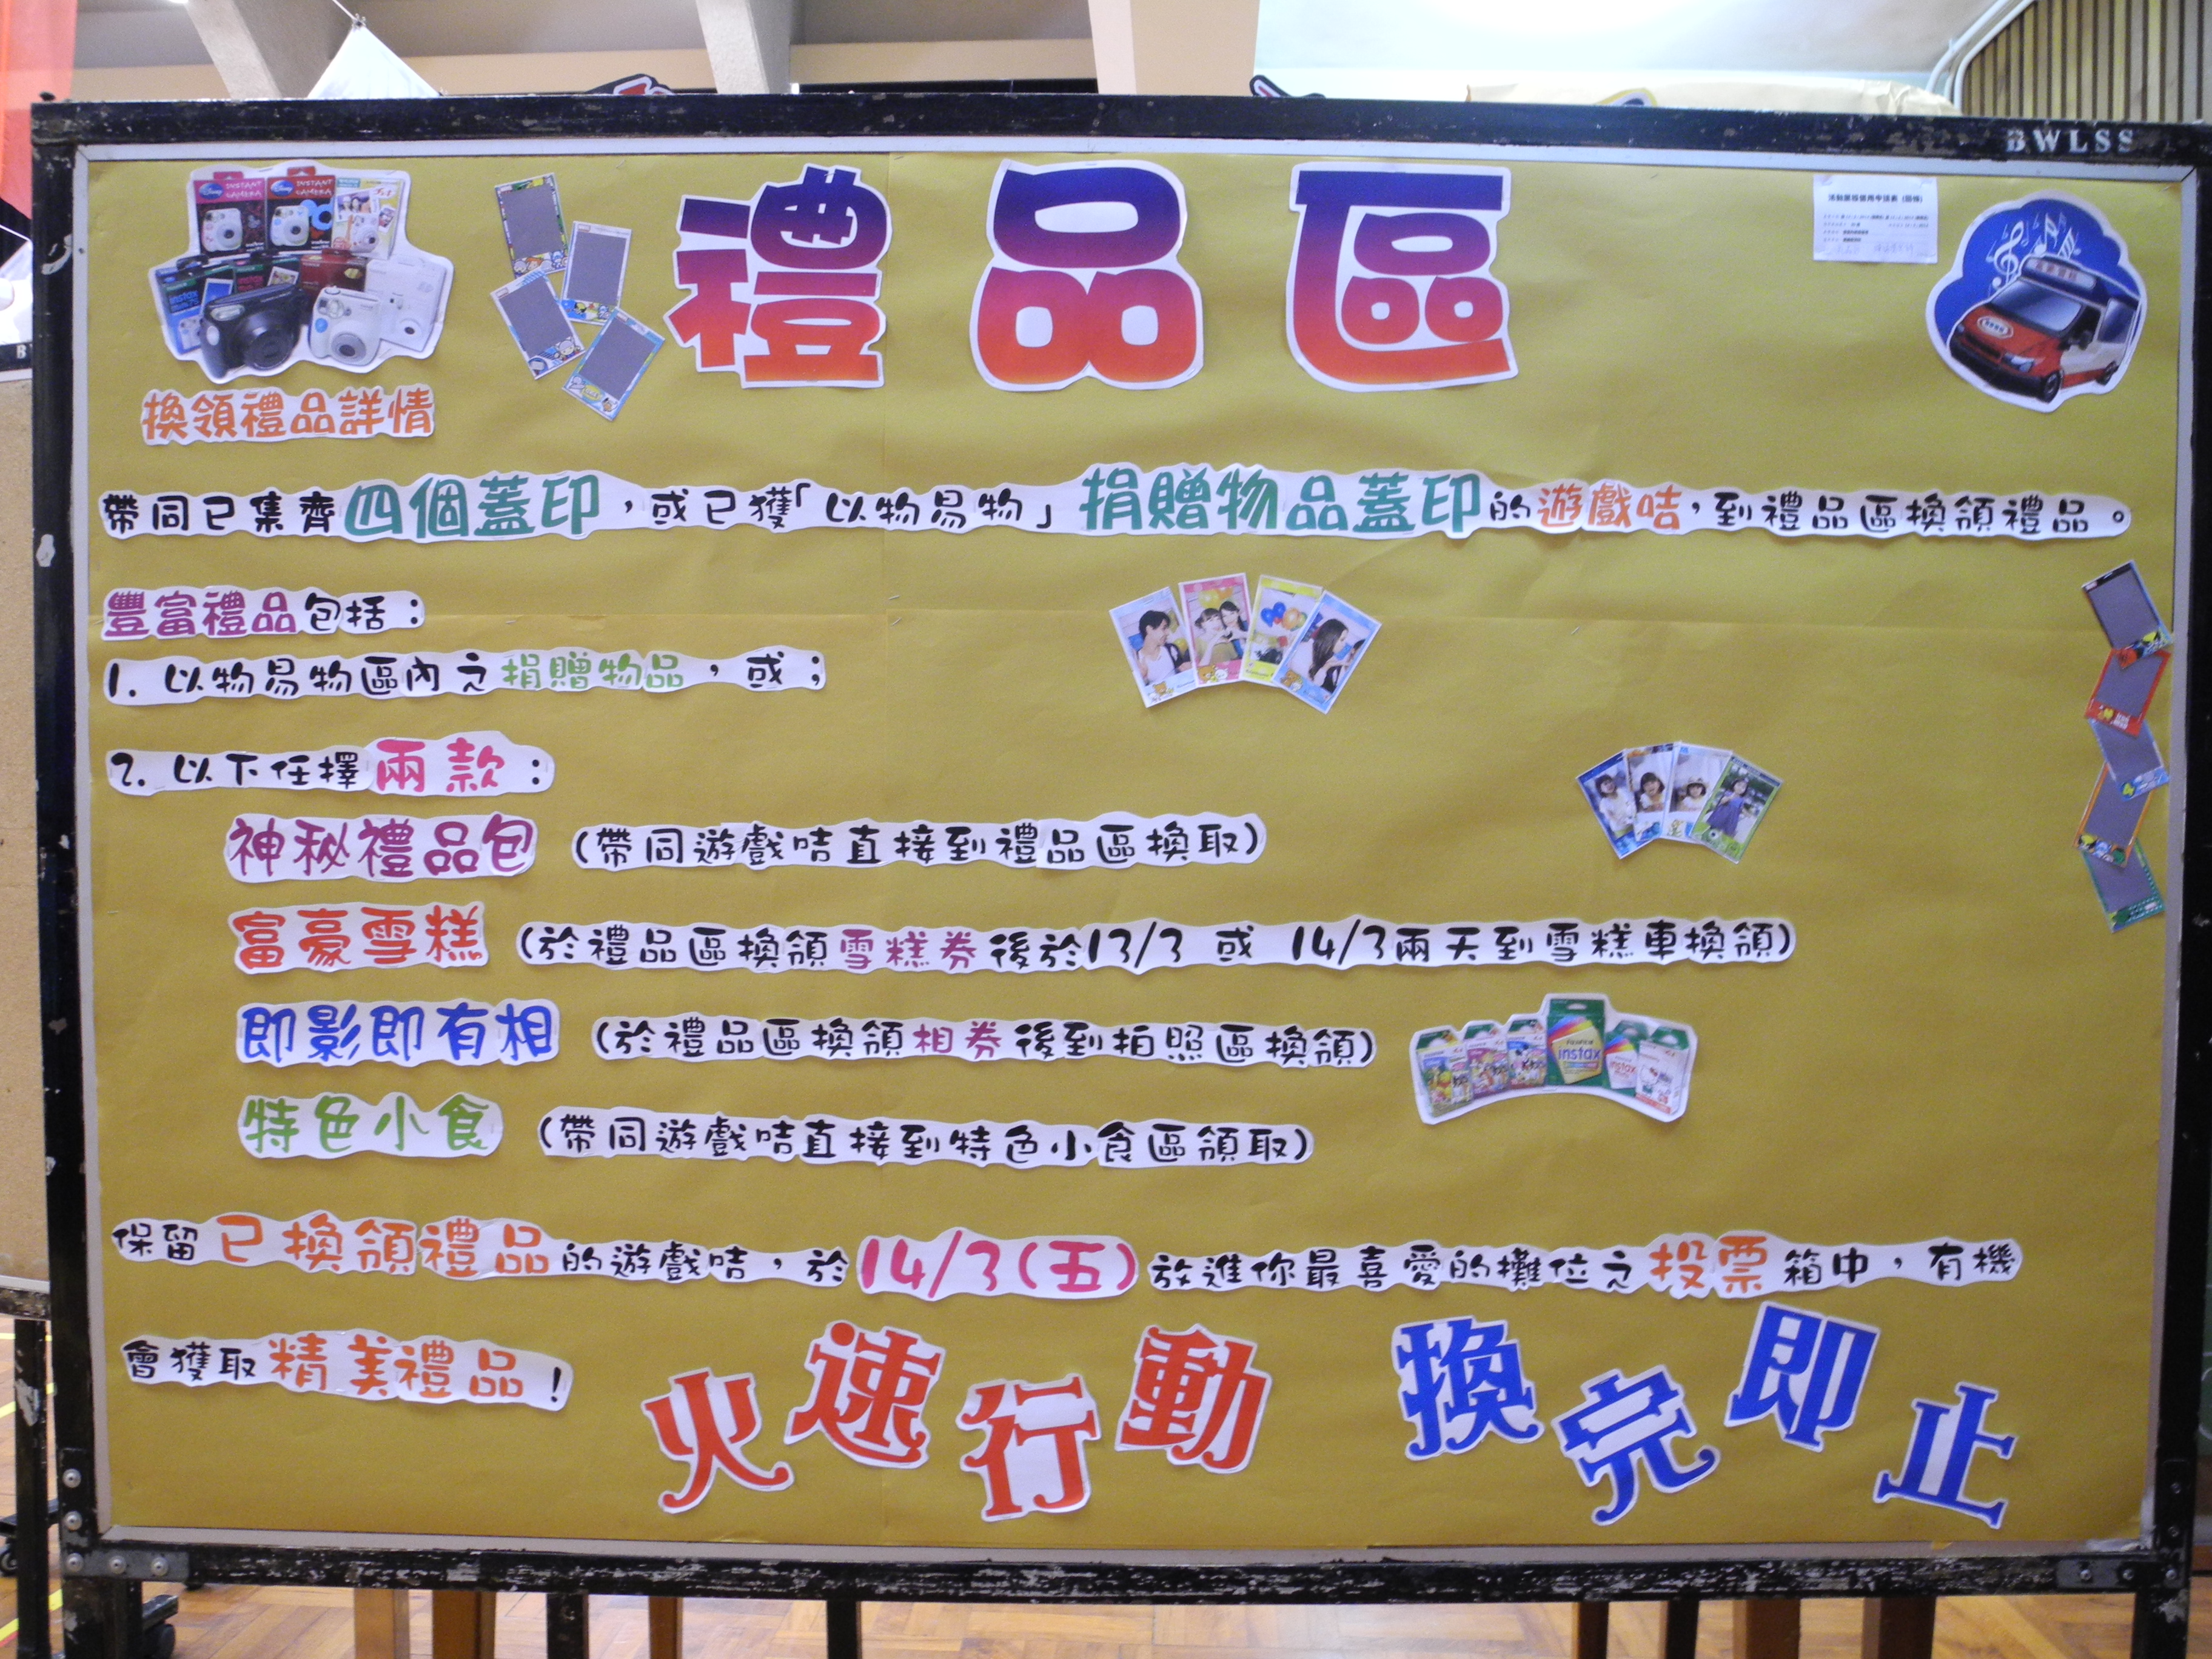 BWLSS
禮品區
INSTANT CAMERA
INSTANT CAMERA
instax
換領禮品詳情
帶同已集齊四個蓋印，或已獲「以物易物」捐贈物品蓋印的遊戲咭，到禮品區換領禮品。
豐富禮品包括：
1. 以物易物區內之捐贈物品，或；
2. 以下任擇兩款：
神秘禮品包 (帶同遊戲咭直接到禮品區換取)
富豪雪糕 (於禮品區換領雪糕券後於13/3 或 14/3兩天到雪糕車換領)
即影即有相 (於禮品區換領相券後到拍照區換領)
instax
特色小食 (帶同遊戲咭直接到特色小食區領取)
保留已換領禮品的遊戲咭，於14/3(五)放進你最喜愛的攤位之投票箱中，有機
會獲取精美禮品！
火速行動 換完即止